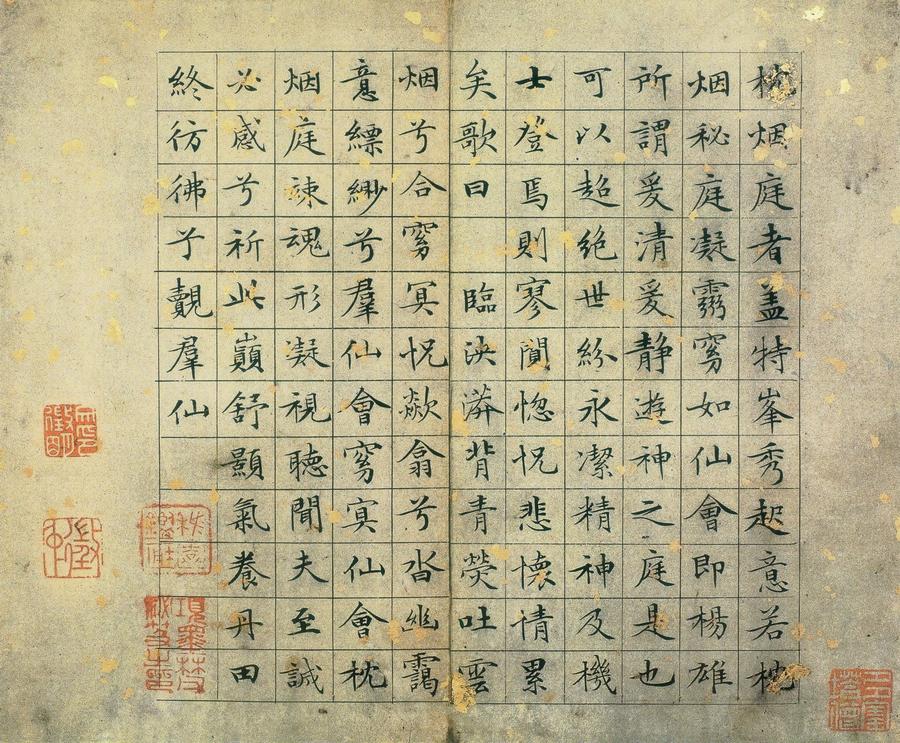 枕烟庭者盖特峯秀起意若枕
烟秘庭凝靈窅如仙會即楊雄
所謂爰清爰静遊神之庭是也
可以超絶世紛永潔精神及機
士登焉則寥閴惚怳悲懷情累
矣歌曰 臨泱漭背青熒吐雲
烟兮合窅冥怳欻翕兮沓幽靄
意縹緲兮羣仙會窅冥仙會枕
烟庭竦魂形凝視聽聞夫至誠
必感兮祈此巔舒顥氣養丹田
終彷彿兮覿羣仙
項墨林父秘笈之印